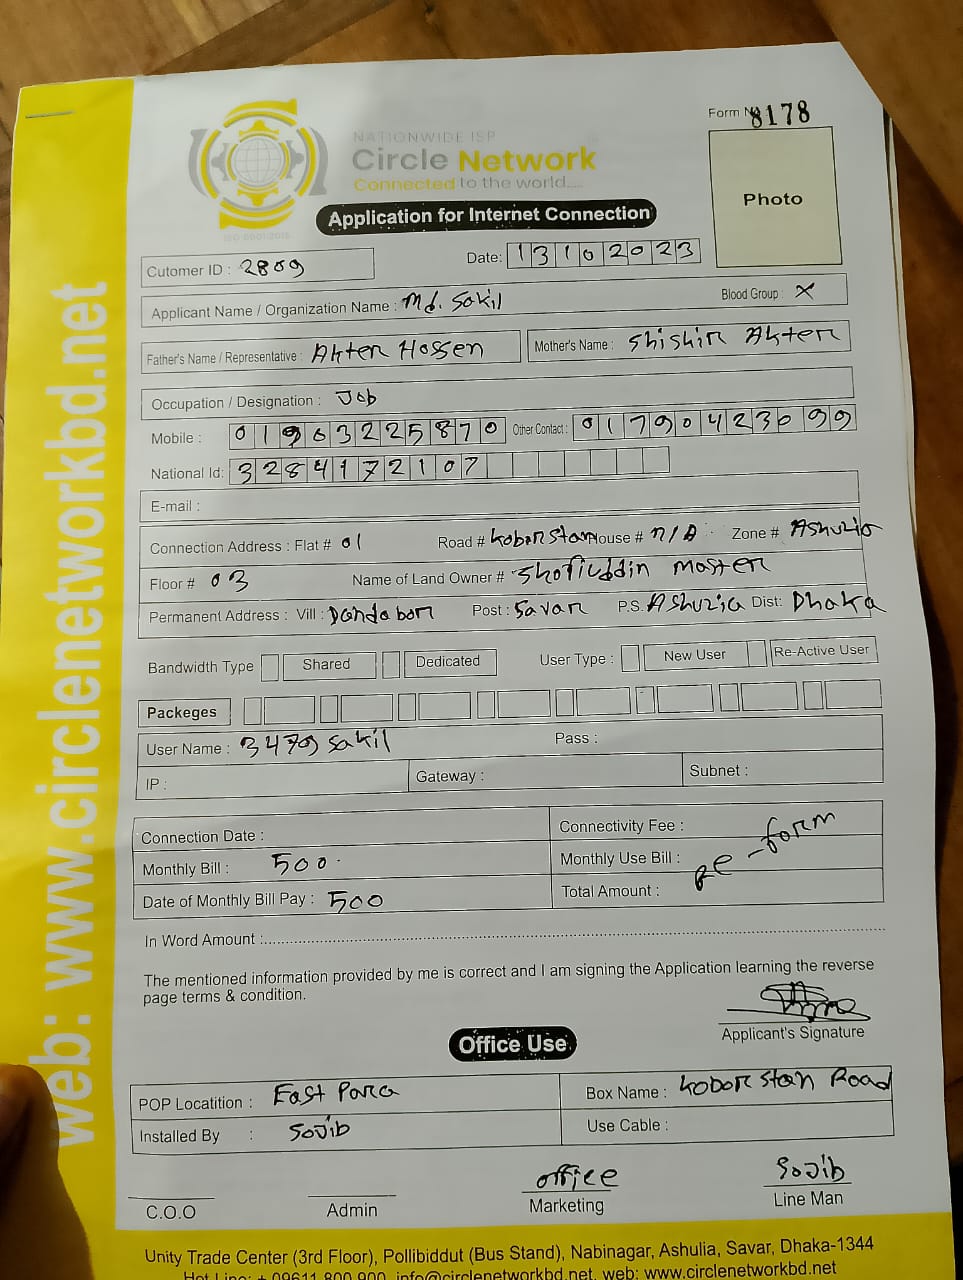 Form No 8178
NATIONWIDE ISP
Circle Network
Connected to the world.....
ISO 9001:2015
Application for Internet Connection
Photo
Cutomer ID : 2809
Date: 13102023
Applicant Name / Organization Name : Md. Sakil
Blood Group : X
Father's Name / Representative : Akter Hossen
Mother's Name : Shishir Akter
Occupation / Designation : Job
Mobile : 01963225870 Other Contact : 01790423099
National Id: 3284172107
E-mail :
Connection Address : Flat # 01 Road # Koborstan House # n/A Zone # Ashulia
Floor # 03 Name of Land Owner # Shofiuddin Master
Permanent Address : Vill : Dandabor Post : Savar P.S. Ashulia Dist: Dhaka
Bandwidth Type Shared Dedicated User Type : New User Re-Active User
Packeges
User Name : 3479 Sakil Pass :
IP : Gateway : Subnet :
Connection Date : Connectivity Fee :
Monthly Bill : 500 Monthly Use Bill :
Re-form
Date of Monthly Bill Pay : 500 Total Amount :
In Word Amount :
The mentioned information provided by me is correct and I am signing the Application learning the reverse
page terms & condition.
Applicant's Signature
Office Use
POP Locatition : East Para Box Name : Kobor Stan Road
Installed By : Sojib Use Cable :
office Sojib
C.O.O Admin Marketing Line Man
Unity Trade Center (3rd Floor), Pollibiddut (Bus Stand), Nabinagar, Ashulia, Savar, Dhaka-1344
Hot Line: + 09611 800 900, info@circlenetworkbd.net, web: www.circlenetworkbd.net
web: www.circlenetworkbd.net